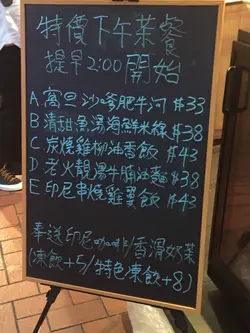 特價下午茶餐
提早2:00開始
A 窩旦沙爹肥牛河 $33
B 清甜魚湯海鮮米線 $38
C 炭燒雞柳油香飯 $43
D 老火靚湯牛腩油麵 $38
E 印尼串燒雞翼飯 $43
奉送印尼咖啡/香滑奶茶
(凍飲+5/特色凍飲+8)